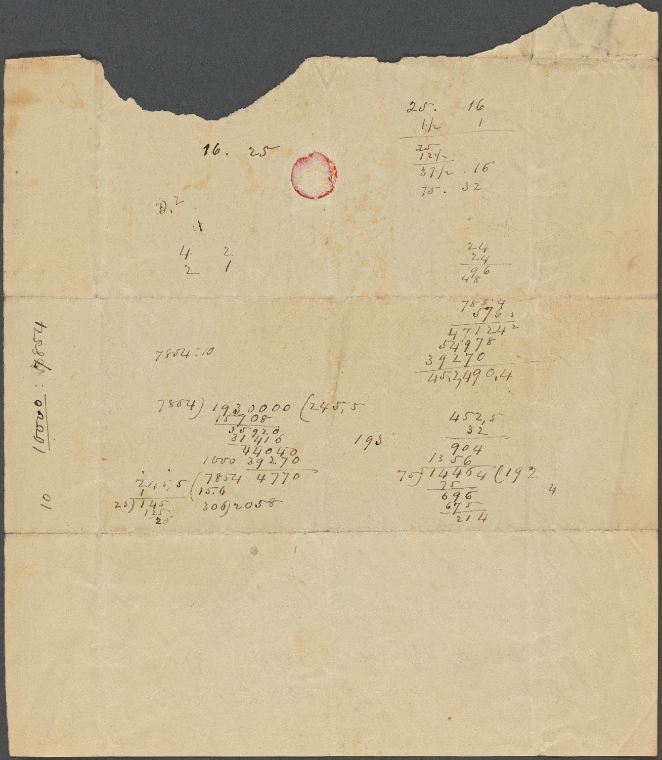 25. 16
1½ 1
25
12½
37½ . 16
75. 32
16. 25
D.²
4 2
2 1
24
24
96
48
7854
576
47124
54978
39270
452,490,4
7854:10
7854) 1930000 (245,5
15708
35920
31416
44040
1000 39270
7854 4770
15.6
306)2058
245,5
1
25) 145
125
25
193
452,5
32
904
1356
75) 14464 (192
75
696
675
214
4
10 10000: 7854